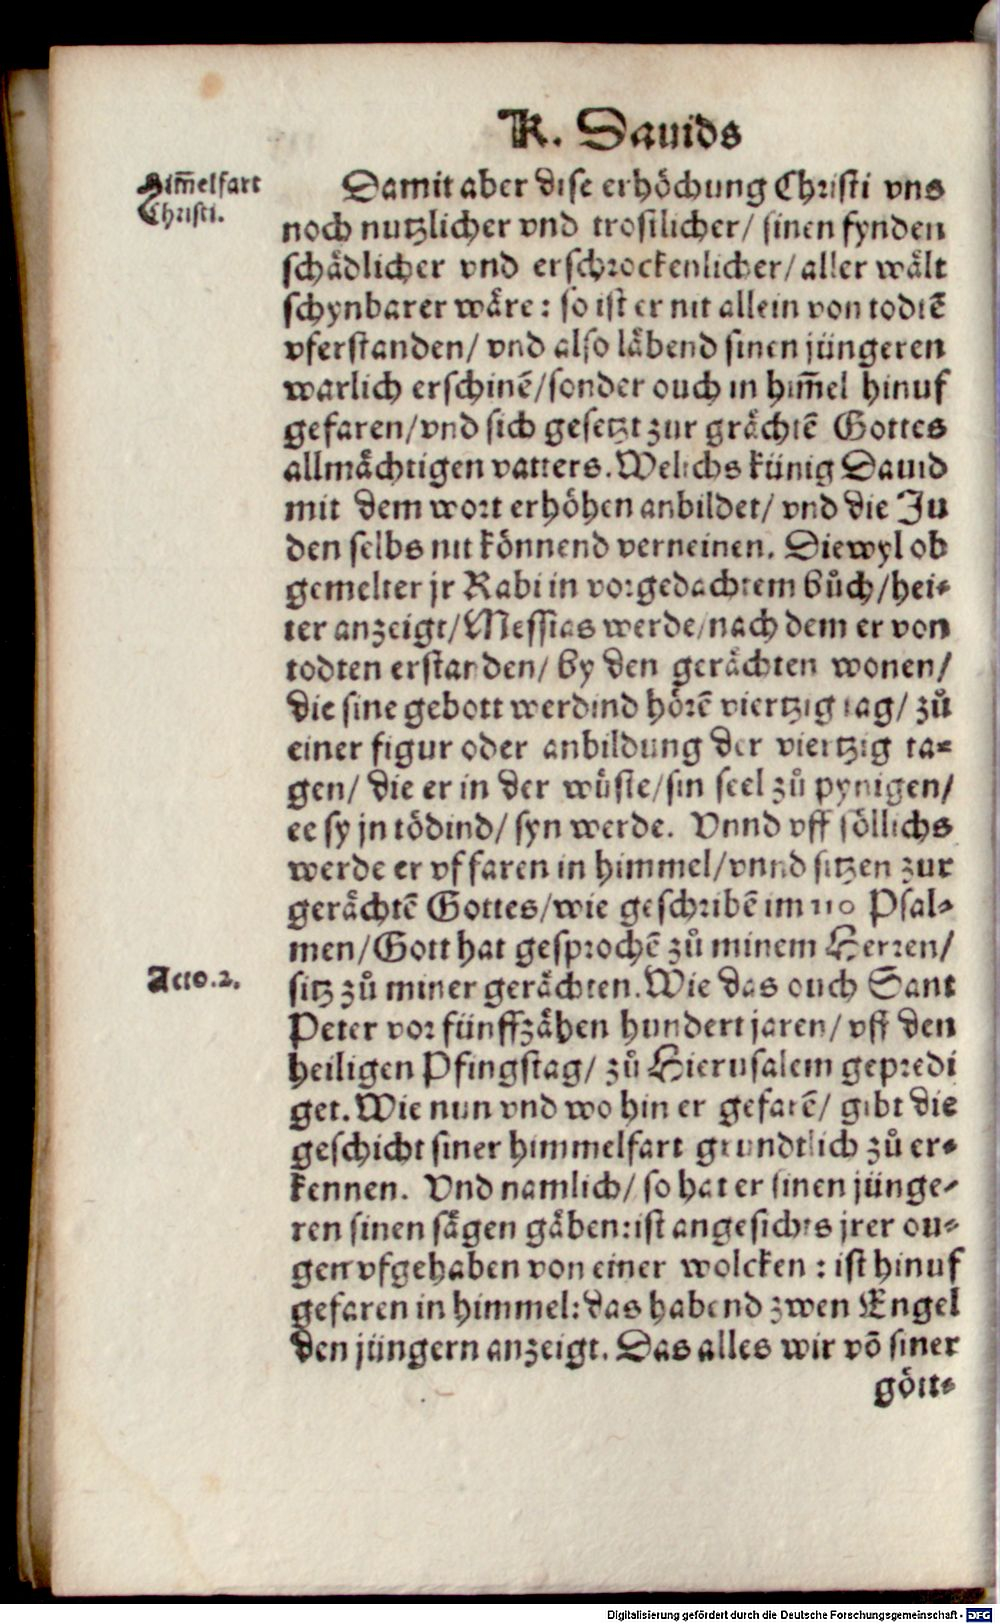 K. Dauids
Him̃elfart
Christi.
Damit aber dise erhöchung Christi vns
noch nutzlicher vnd trostlicher/ sinen fynden
schädlicher vnd erschrockenlicher/ aller wält
schynbarer wäre: so ist er nit allein von todtẽ
vferstanden/ vnd also läbend sinen jüngeren
warlich erschinẽ/ sonder ouch in him̃el hinuf
gefaren/ vnd sich gesetzt zur grächtẽ Gottes
allmächtigen vatters. Welichs künig Dauid
mit dem wort erhöhen anbildet/ vnd die Ju
den selbs nit könnend verneinen. Diewyl ob
gemelter jr Rabi in vorgedachtem bůch/ hei-
ter anzeigt/ Messias werde/ nach dem er von
todten erstanden/ by den gerächten wonen/
die sine gebott werdind hörẽ viertzig tag/ zů
einer figur oder anbildung der viertzig ta-
gen/ die er in der wüste/ sin seel zů pynigen/
ee sy jn tödind/ syn werde. Vnnd vff söllichs
werde er vffaren in himmel/ vnnd sitzen zur
gerächtẽ Gottes/ wie geschribẽ im 110 Psal-
men/ Gott hat gesprochẽ zů minem Herren/
Acto.2.
sitz zů miner gerächten. Wie das ouch Sant
Peter vor fünffzähen hundert jaren/ vff den
heiligen Pfingstag/ zů Hierusalem gepredi
get. Wie nun vnd wo hin er gefarẽ/ gibt die
geschicht siner himmelfart grundtlich zů er-
kennen. Vnd namlich/ so hat er sinen jünge-
ren sinen sägen gäben: ist angesichts jrer ou-
gen vfgehaben von einer wolcken: ist hinuf
gefaren in himmel: das habend zwen Engel
den jüngern anzeigt. Das alles wir võ siner
gött-
Digitalisierung gefördert durch die Deutsche Forschungsgemeinschaft - DFG